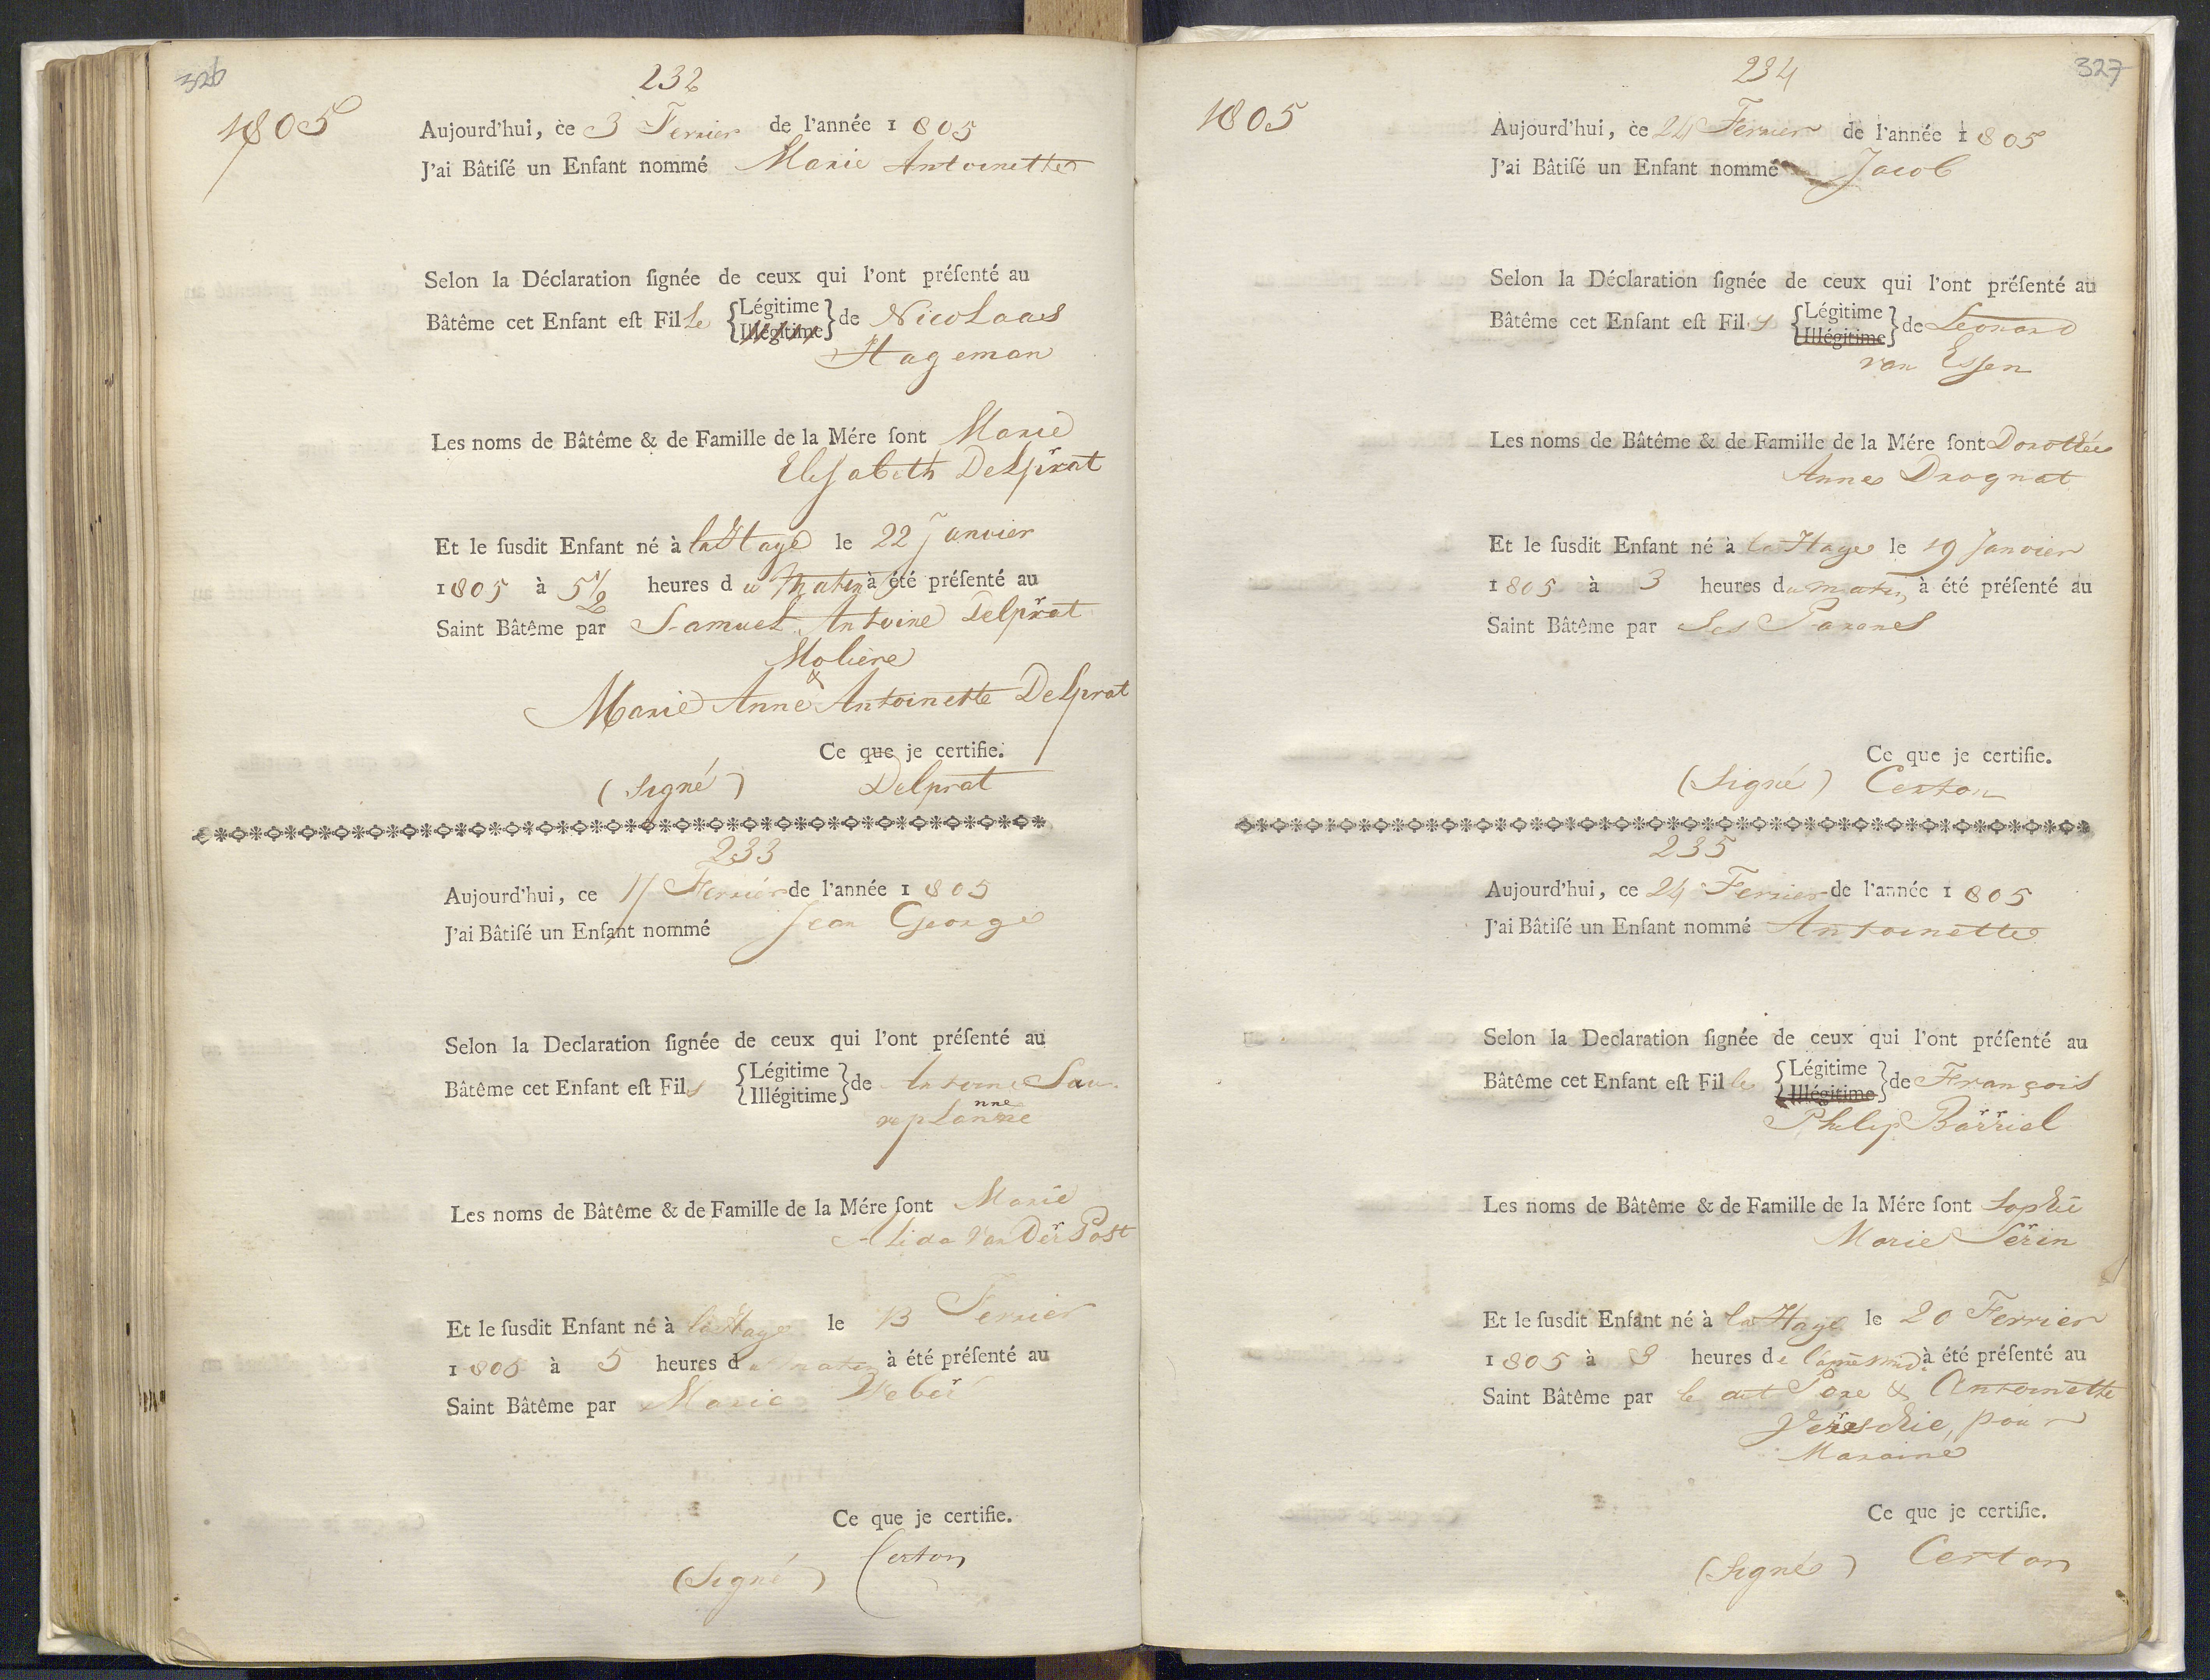 326
232
1805
Aujourd'hui, ce 3 Fevrier de l'année 1805
J'ai Bâtisé un Enfant nommé Marie Antoinette
Selon la Déclaration signée de ceux qui l'ont présenté au
Bâtême cet Enfant est Fille {Légitime Illégitime} de Nicolaas
Hageman
Les noms de Bâtême & de Famille de la Mére sont Marie
Elisabeth Delprat
Et le susdit Enfant né à la Haye le 22 Janvier
1805 à 5 1/2 heures du Matin à été présenté au
Saint Bâtême par Samuel Antoine Delprat
Molière
&
Marie Anne Antoinette Delprat
Ce que je certifie.
(Signé) Delprat
233
Aujourd'hui, ce 17 Fevrier de l'année 1805
J'ai Bâtisé un Enfant nommé Jean George
Selon la Declaration signée de ceux qui l'ont présenté au
Bâtême cet Enfant est Fils {Légitime Illégitime} de Antoine Sau-
nne
Les noms de Bâtême & de Famille de la Mére sont Marie
Alida Van Der Post
Et le susdit Enfant né à la Haye le 13 Fevrier
1805 à 5 heures du matin à été présenté au
Saint Bâtême par Marie Weber
Ce que je certifie.
(Signé) Certon
327
234
1805
Aujourd'hui, ce 24 Fevrier de l'année 1805
J'ai Bâtisé un Enfant nommé Jacob
Selon la Déclaration signée de ceux qui l'ont présenté au
Bâtême cet Enfant est Fils {Légitime Illégitime} de Leonard
van Essen
Les noms de Bâtême & de Famille de la Mére sont Dorothée
Anne Drognat
Et le susdit Enfant né à la Haye le 19 Janvier
1805 à 3 heures du matin à été présenté au
Saint Bâtême par Ses Parens
Ce que je certifie.
(Signé) Certon
235
Aujourd'hui, ce 24 Fevrier de l'année 1805
J'ai Bâtisé un Enfant nommé Antoinette
Selon la Declaration signée de ceux qui l'ont présenté au
Bâtême cet Enfant est Fille {Légitime Illégitime} de François
Philip Barriel
Les noms de Bâtême & de Famille de la Mére sont Sophie
Marie Serin
Et le susdit Enfant né à la Haye le 20 Fevrier
1805 à 3 heures de l'aprèsmidi à été présenté au
Saint Bâtême par le dit Pere & Antoinette
pour
Maraine
Ce que je certifie.
(Signé) Certon